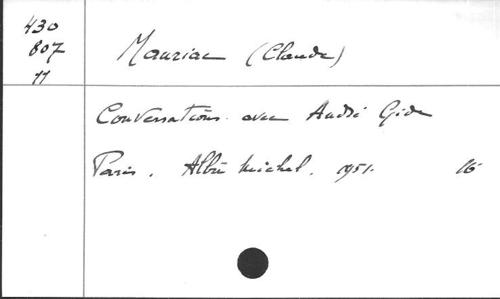 430
807
11
Mauriac (Claude)
Conversations avec André Gide
Paris. Albin Michel. 1951. 16